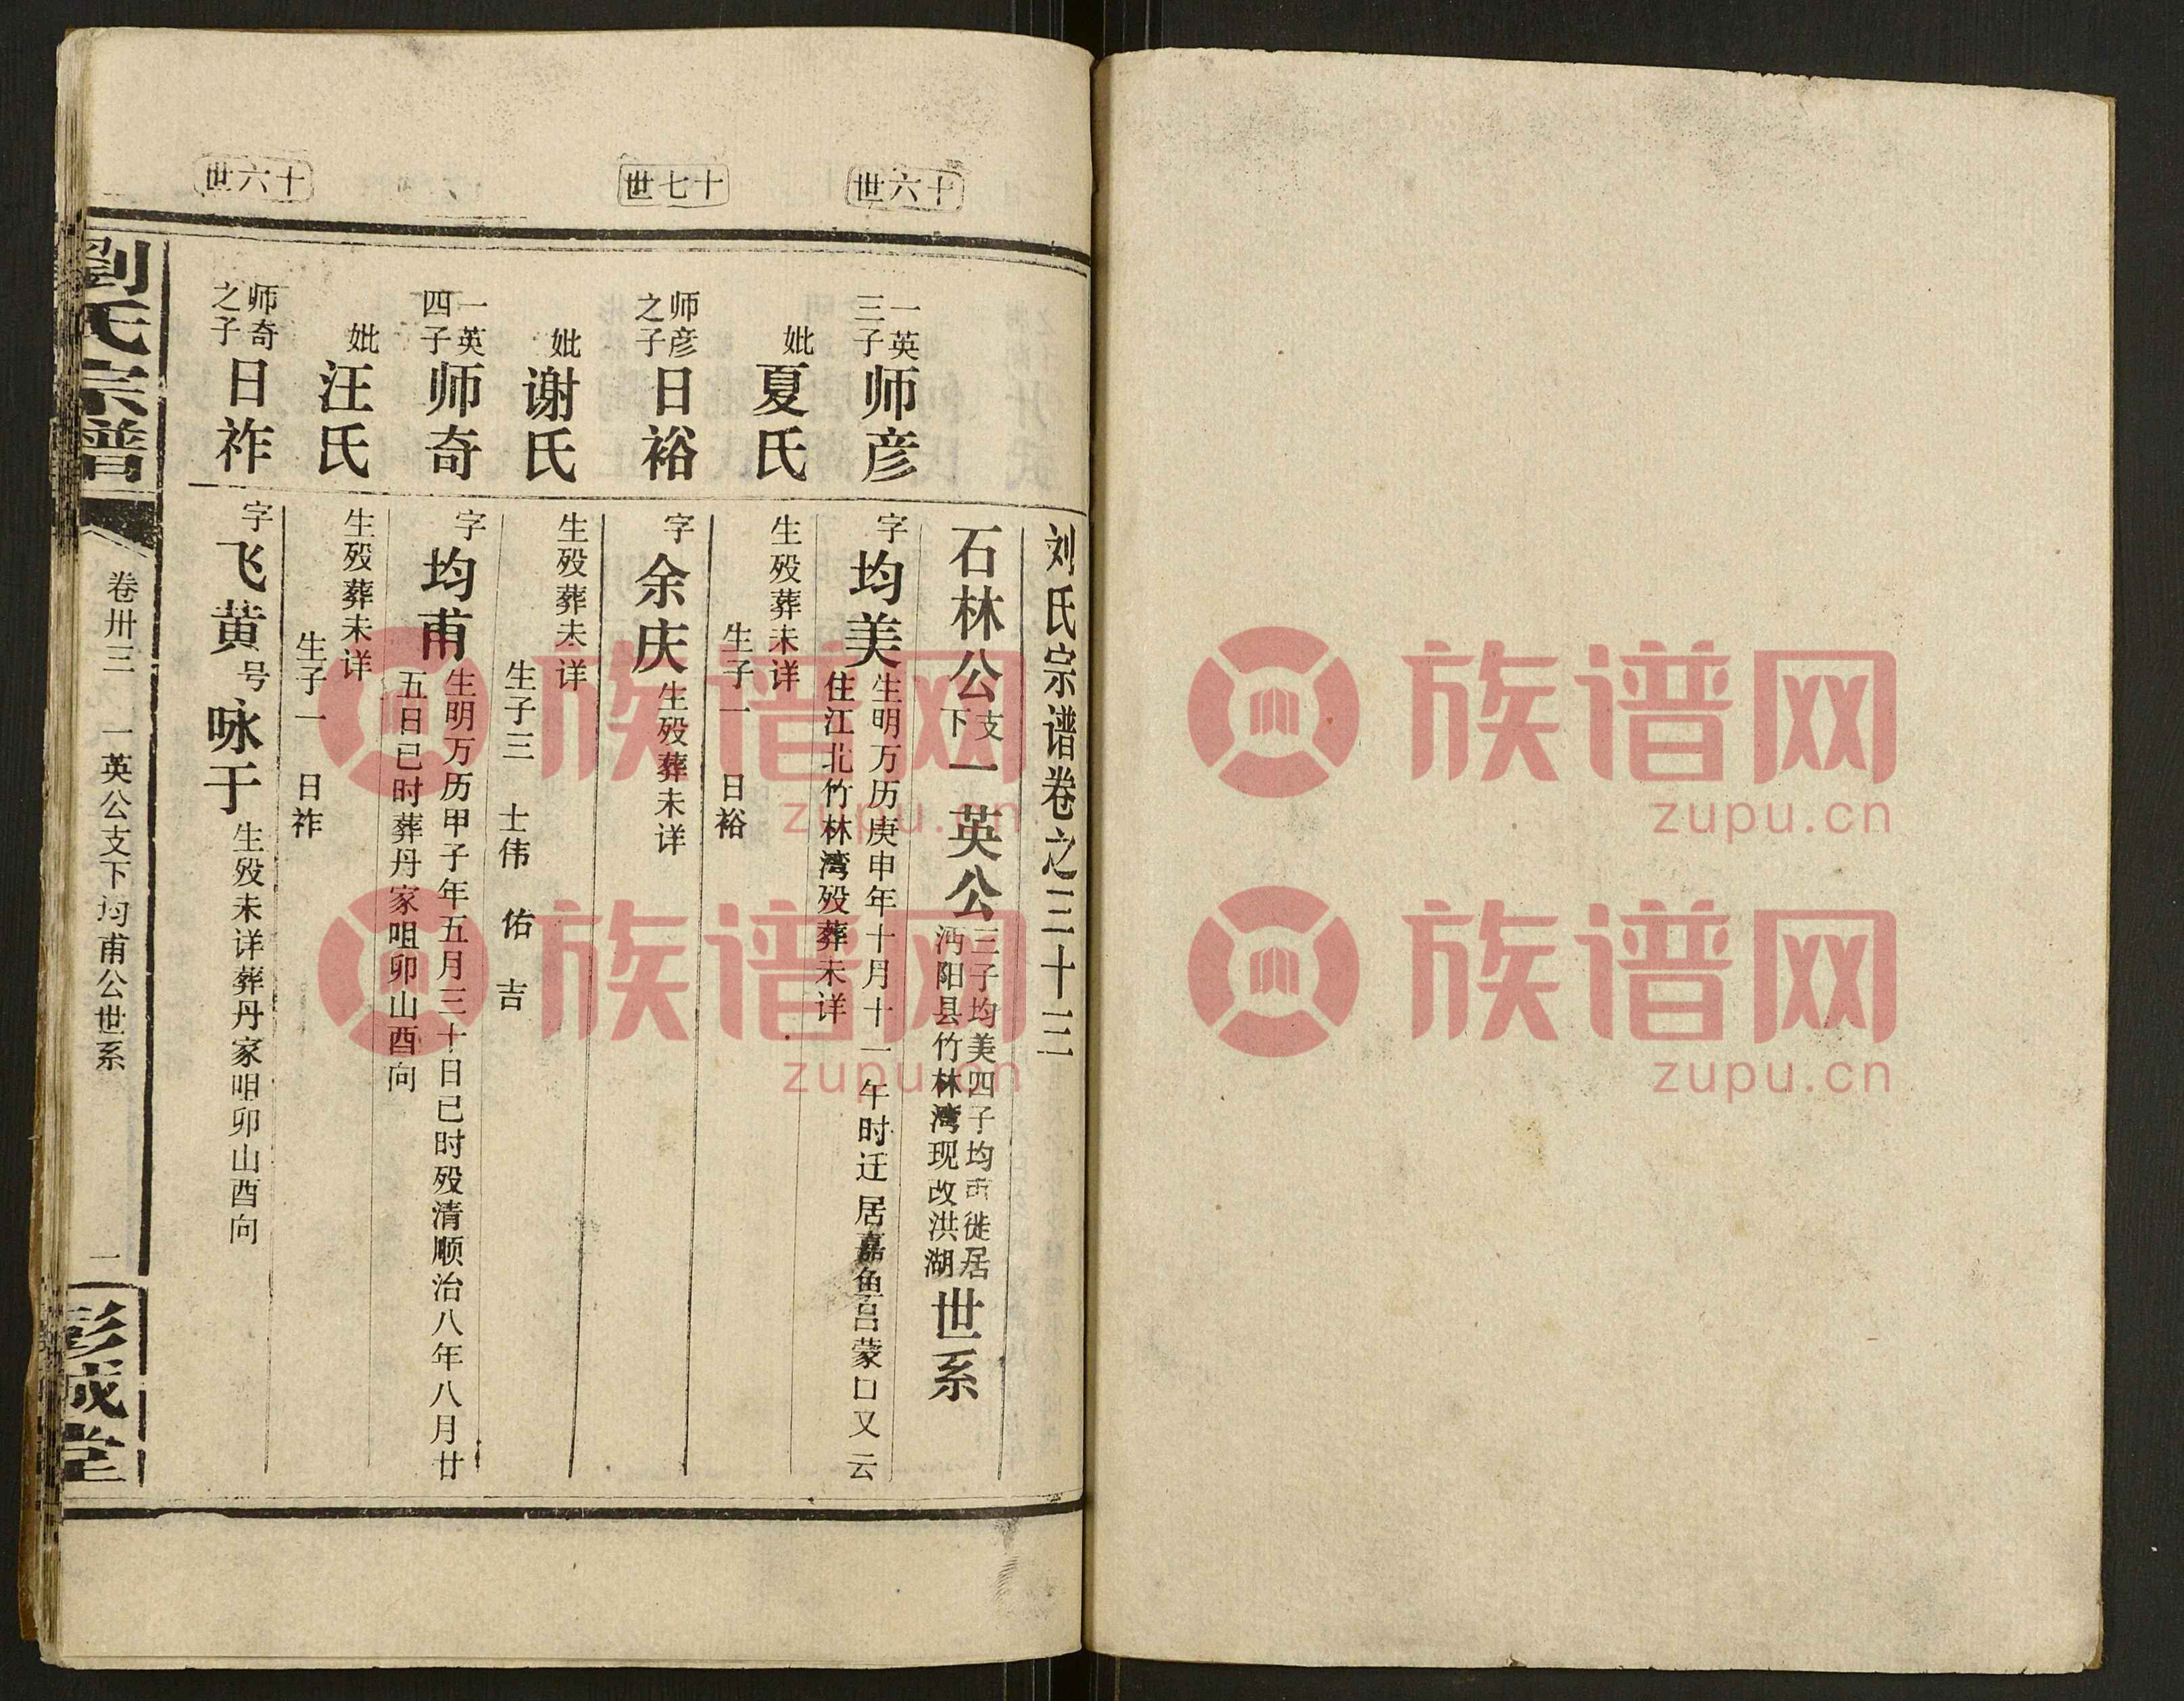 刘氏宗谱卷之三十三
石林公支下一英公三子均美四子均甫徙居沔阳县竹林湾现改洪湖世系
十六世
一英三子师彦
字均美生明万历庚申年十月十一午时迁居嘉鱼吕蒙口又云住江北竹林湾殁葬未详
妣夏氏
生殁葬未详
生子一 日裕
十七世
师彦之子日裕
字余庆生殁葬未详
妣谢氏
生殁葬未详
生子三 士伟 佑 吉
一英四子师奇
字均甫生明万历甲子年五月三十日巳时殁清顺治八年八月廿五日巳时葬丹家咀卯山酉向
妣汪氏
生殁葬未详
生子一 日祚
十六世
师奇之子日祚
字飞黄号咏于生殁未详葬丹家咀卯山酉向
劉氏宗譜
卷卅三 一英公支下均甫公世系
一
彭城堂
族谱网
zupu.cn
族谱网
zupu.cn
族谱网
zupu.cn
族谱网
zupu.cn